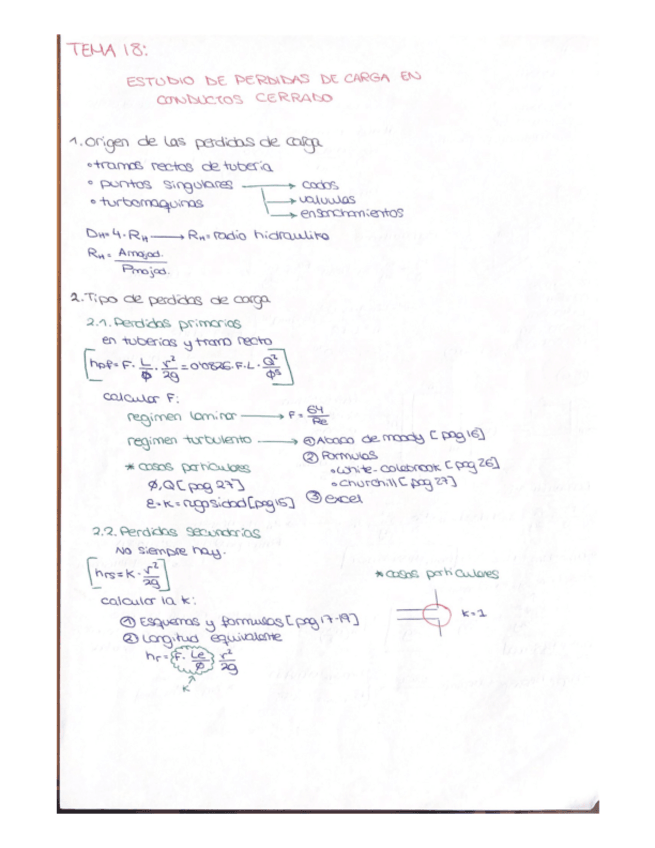 TEMA 18:
ESTUDIO DE PERDIDAS DE CARGA EN
CONDUCTOS CERRADO
1. Origen de las perdidas de carga
• tramos rectos de tuberia
• puntos singulares → codos
→ valvulas
• turbomaquinas
→ ensanchamientos
DH = 4 · RH → RH = radio hidraulico
RH = Amojad. / Pmojad.
2. Tipo de perdidas de carga
2.1. Perdidas primarias
en tuberias y tramo recto
hpf = F · L/Ø · v²/2g = 0'0826 · F · L · Q²/Ø⁵
calcular F:
regimen laminar → F = 64/Re
regimen turbulento → ① Abaco de moody [pag 16]
② Formulas
• white-colebrook [pag 26]
• churchill [pag 27]
③ excel
* casos particulares
Ø, Q [pag 27]
ε = K = rugosidad [pag 15]
2.2. Perdidas secundarias
No siempre hay.
hrs = K · v²/2g
calcular la K:
① Esquemas y formulas [pag 17-19]
② Longitud equivalente
hr = F · Le/Ø · v²/2g
K
* casos particulares
K=1